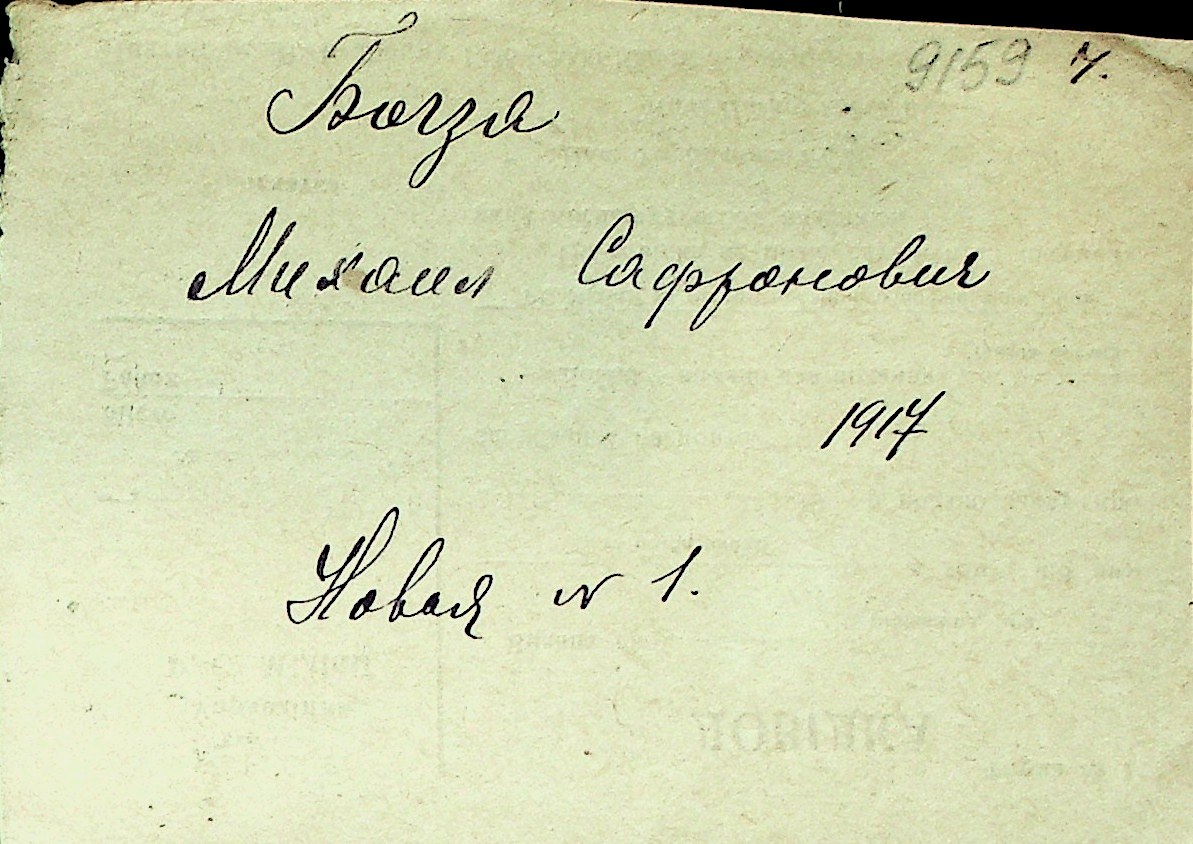 9159 ч.
Богза
Михаил Сафронович
1917
Новая № 1.